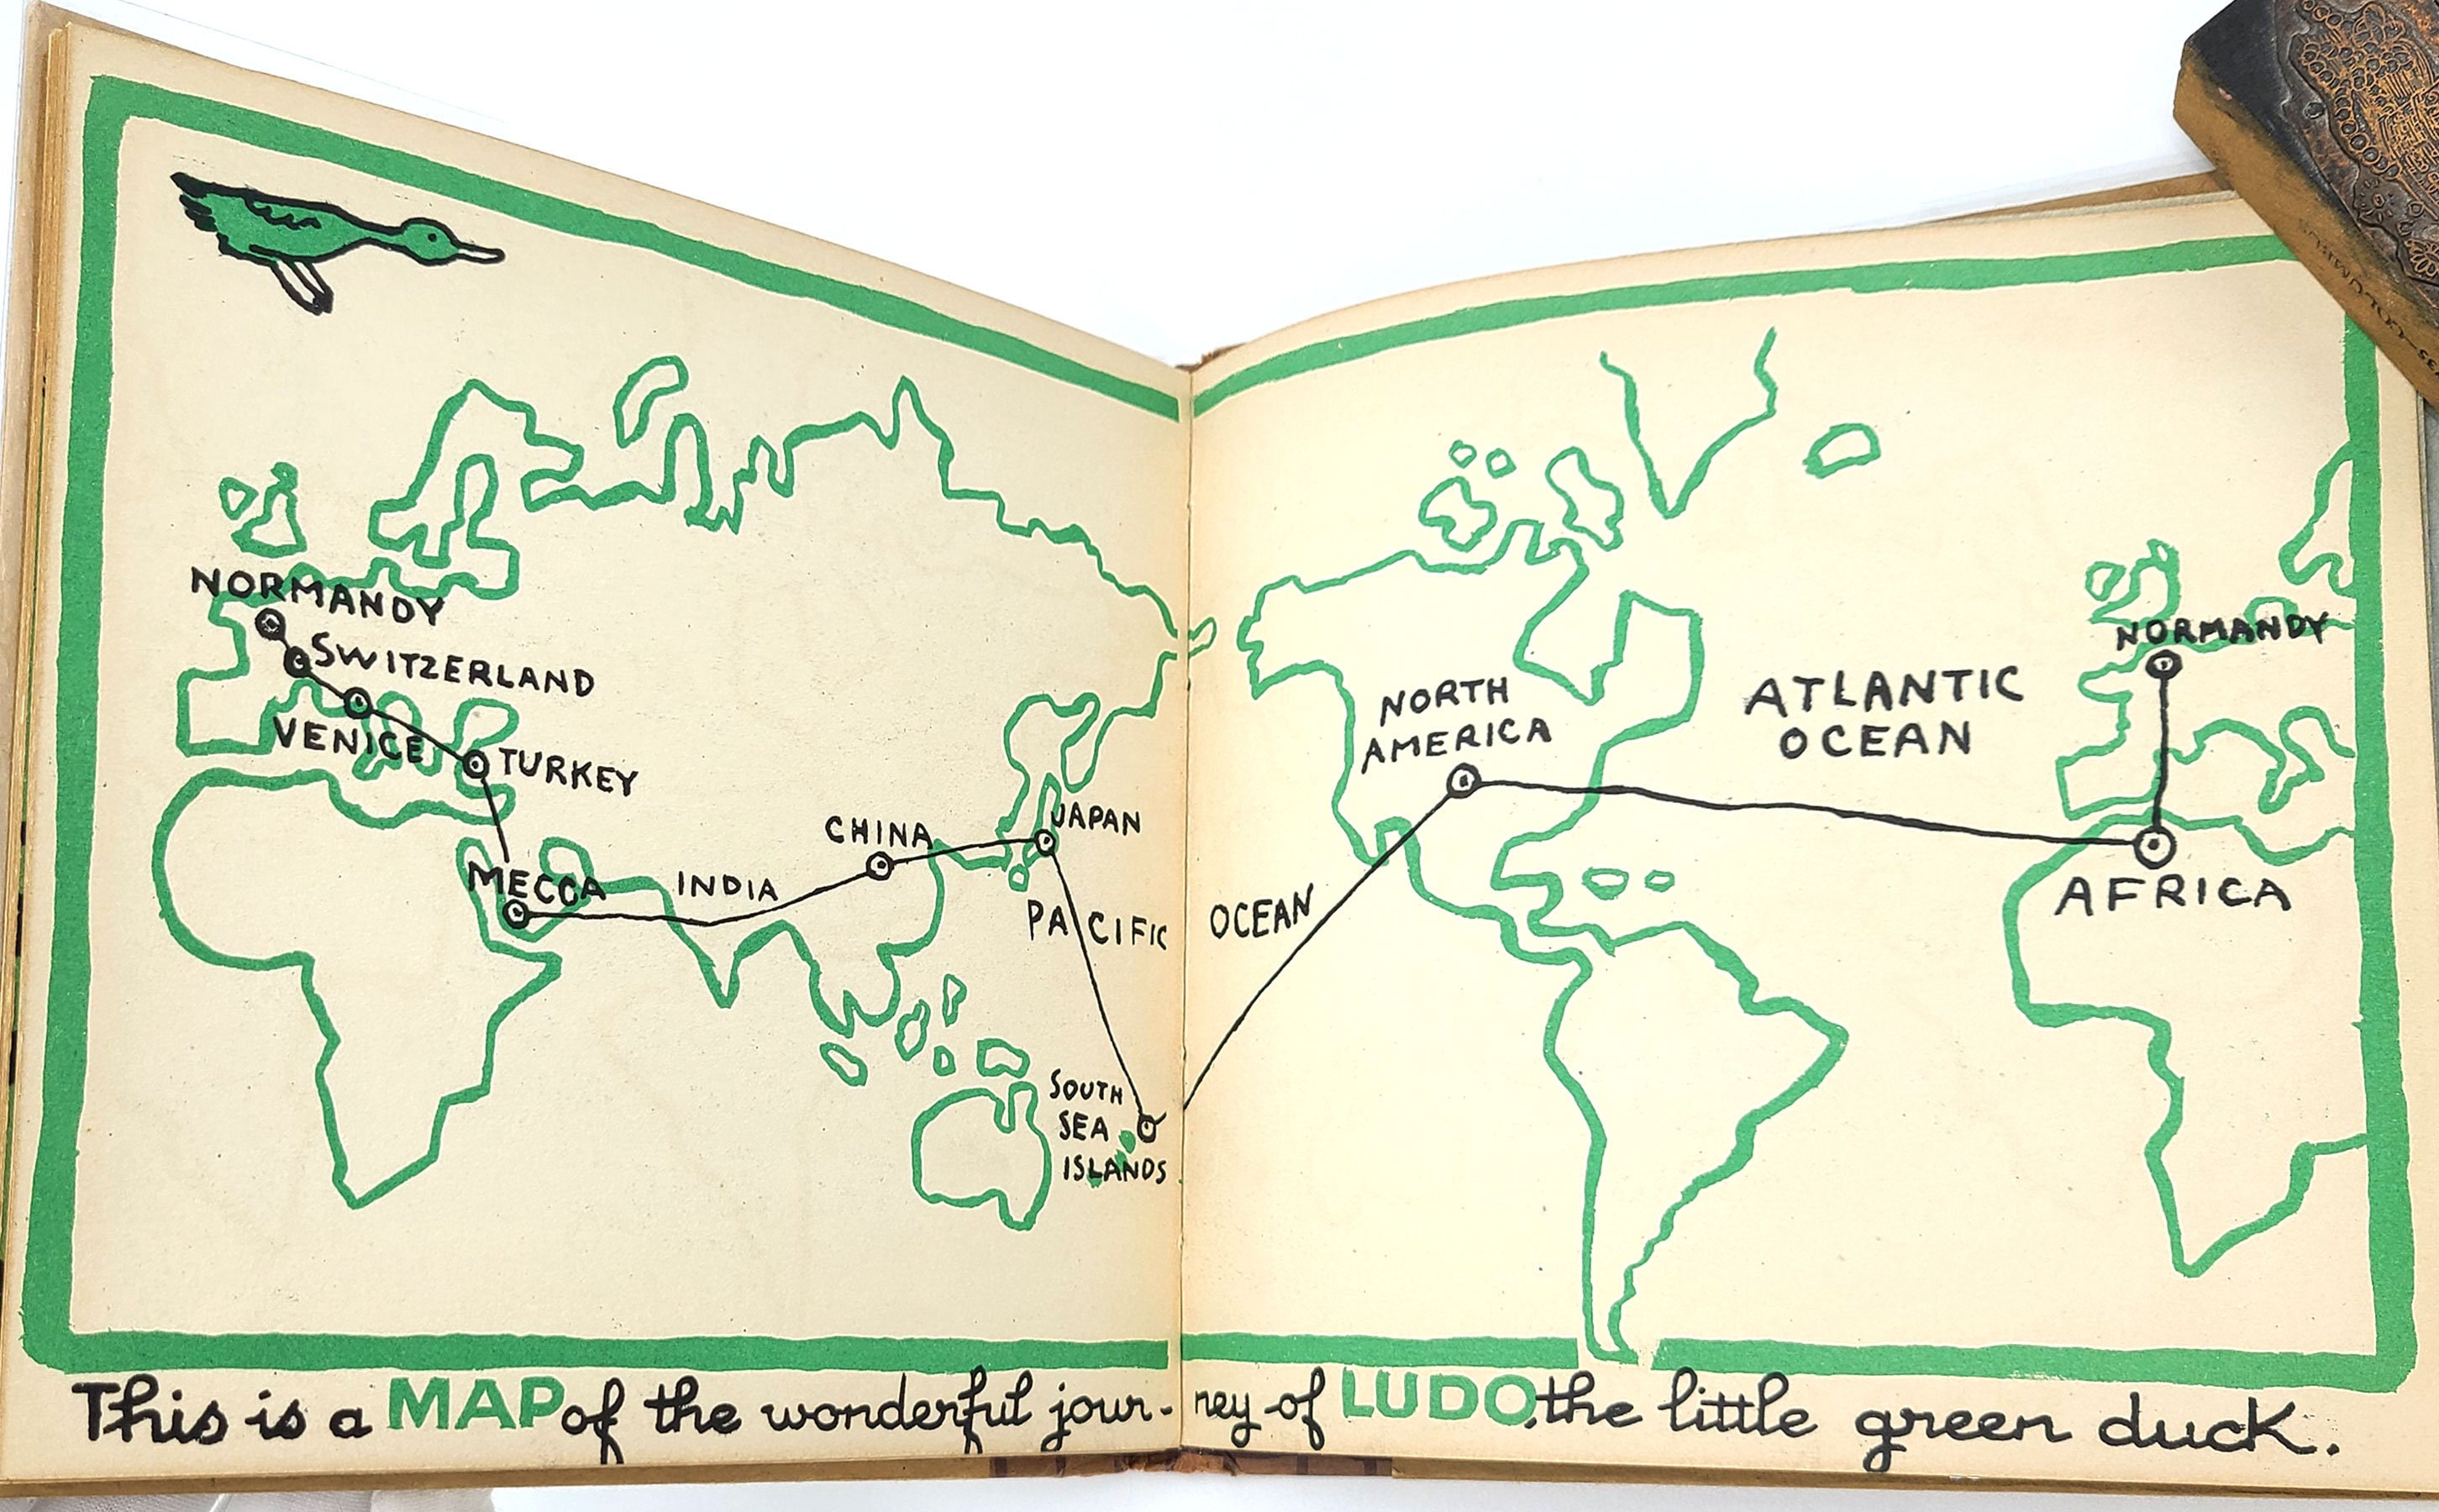 NORMANDY
SWITZERLAND
VENICE
TURKEY
MECCA
INDIA
CHINA
JAPAN
PACIFIC
SOUTH
SEA
ISLANDS
OCEAN
NORTH
AMERICA
ATLANTIC
OCEAN
NORMANDY
AFRICA
This is a MAP of the wonderful jour-
ney of LUDO, the little green duck.